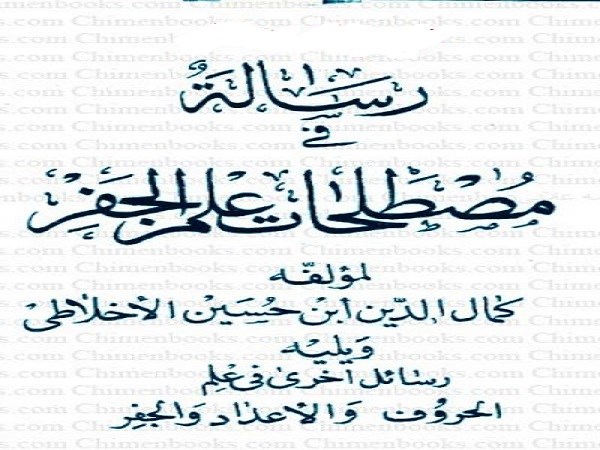 رسالة
في
مصطلحات علم الجفر
لمؤلفه
كمال الدين ابن حسين الأخلاطي
ويليه
رسائل أخرى في علم
الحروف والأعداد والجفر
Chimenbooks.com